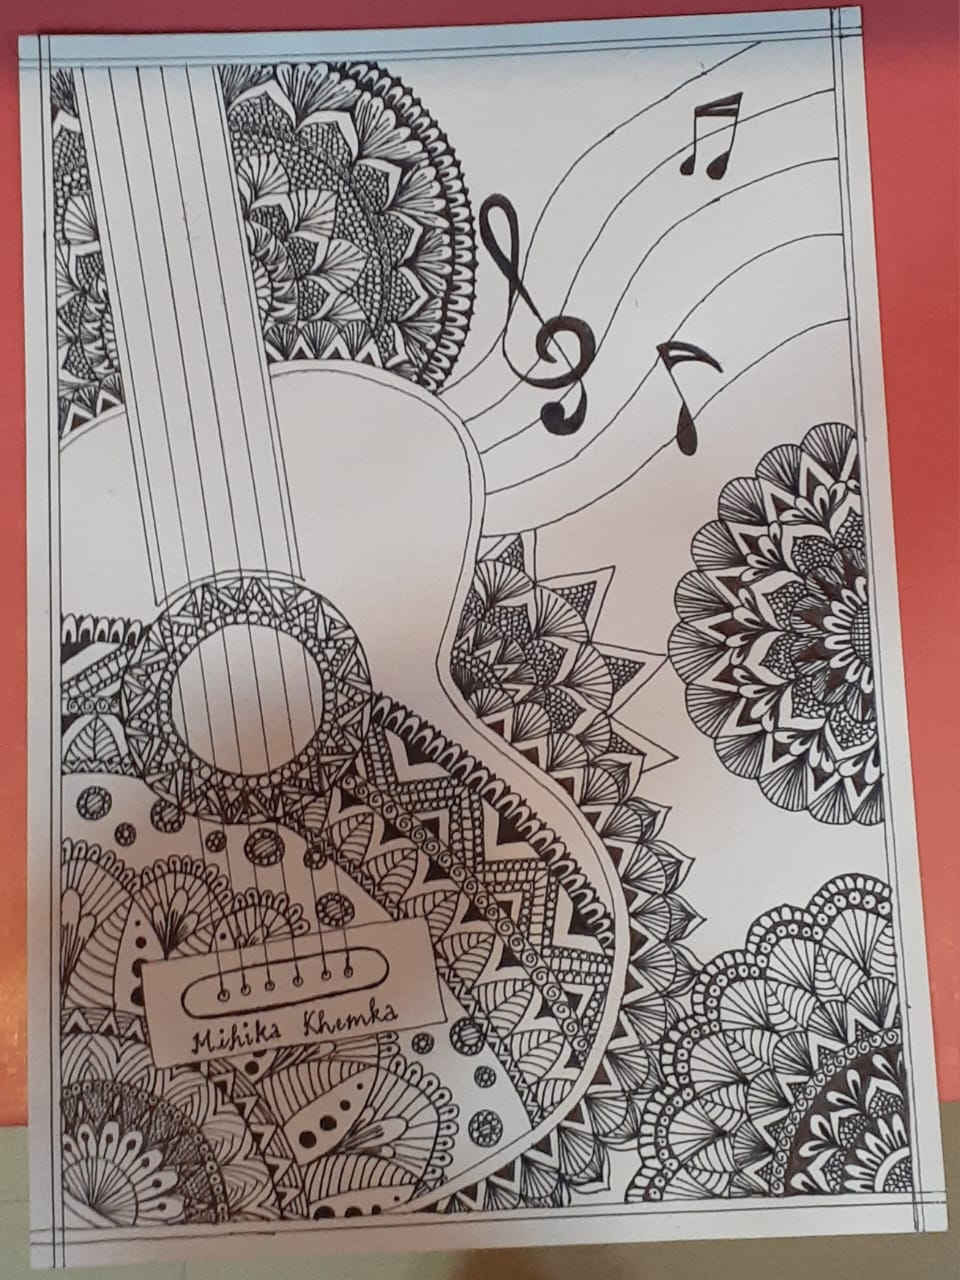 Mihika Khemka